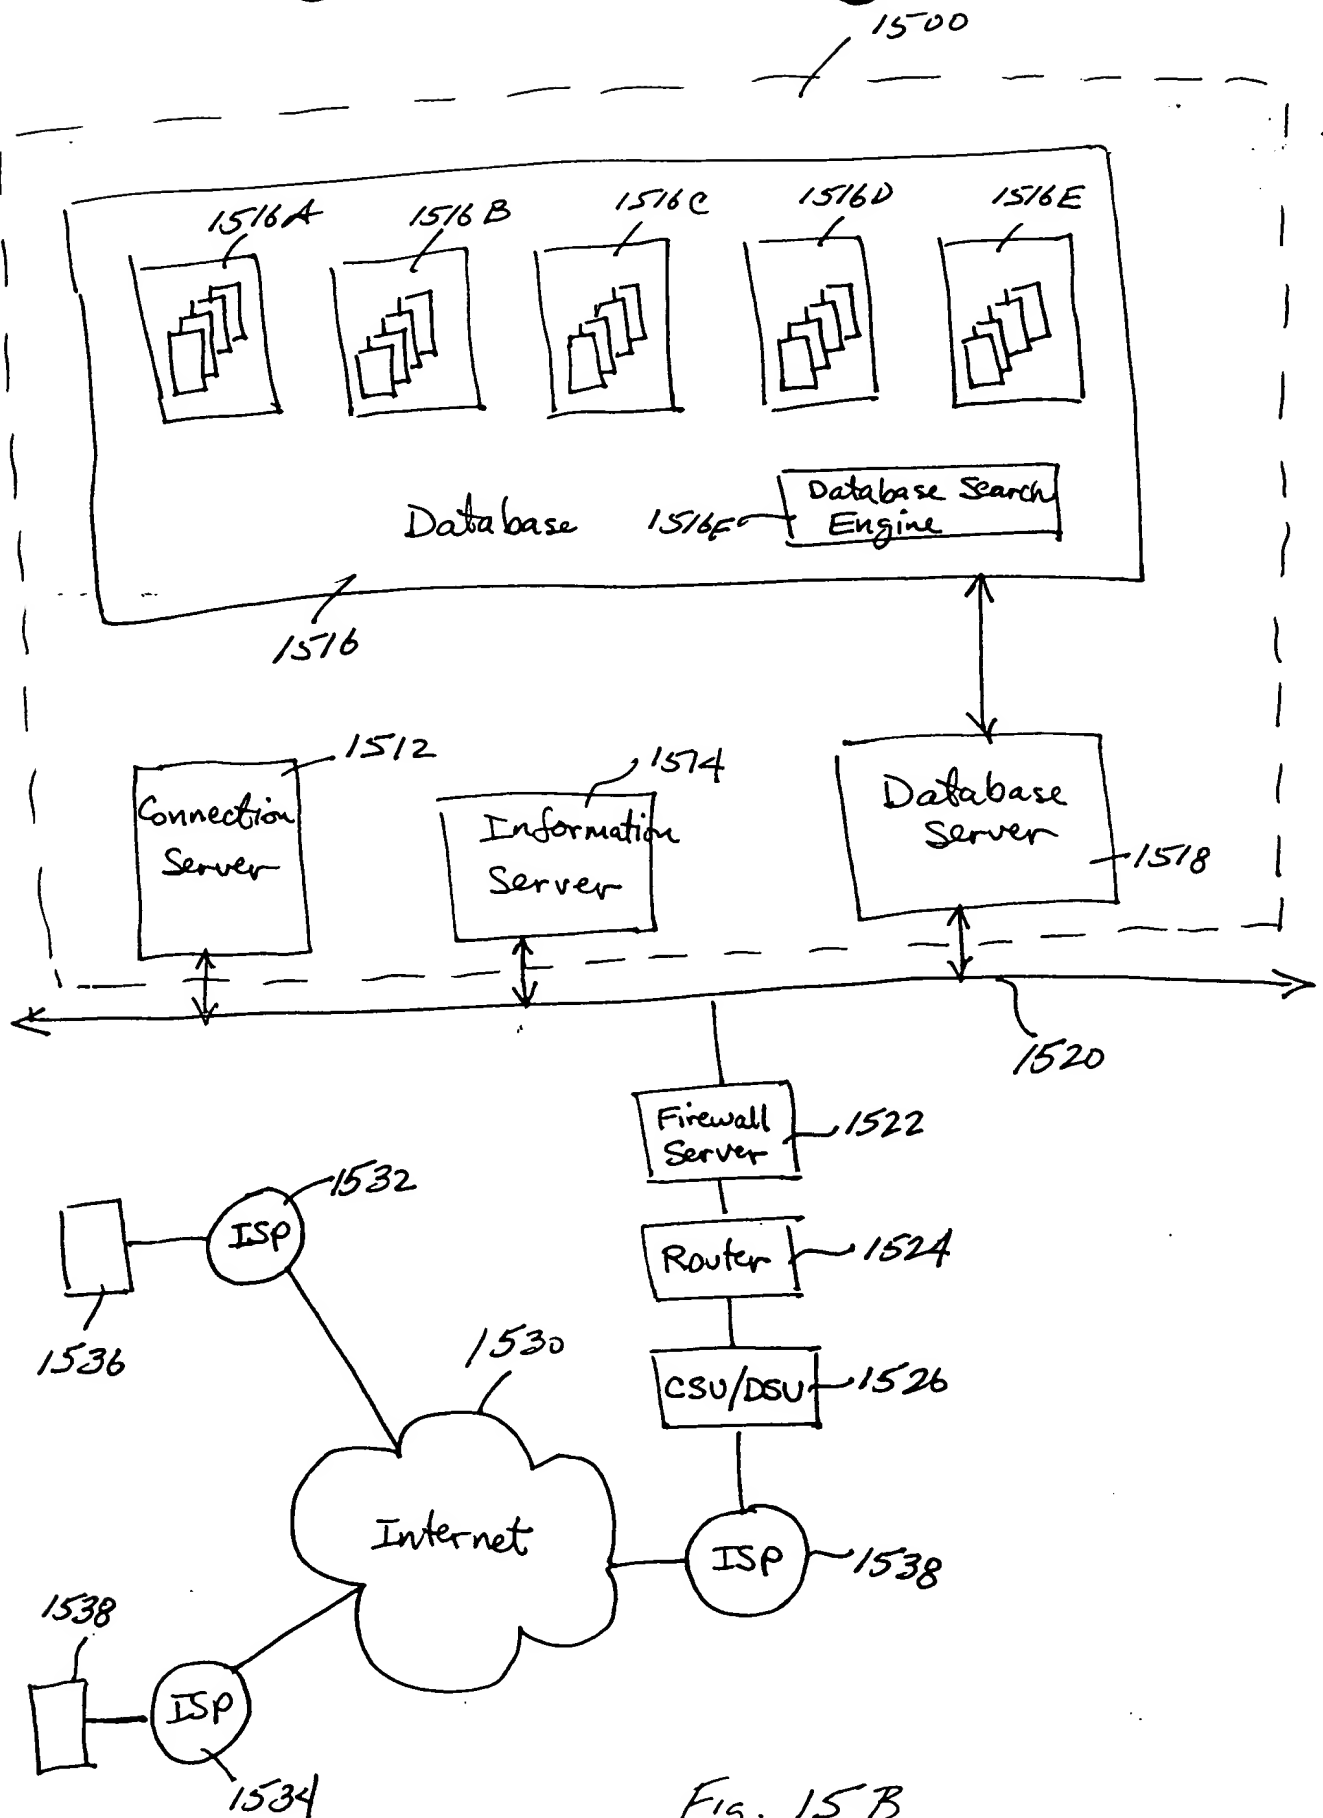 1500
1516A
1516B
1516C
1516D
1516E
Database Search
Engine
1516F
Database
1516
1512
Connection
Server
1514
Information
Server
Database
Server
1518
1520
Firewall
Server
1522
1532
ISP
Router
1524
1536
1530
CSU/DSU
1526
Internet
ISP
1538
1538
ISP
1534
Fig. 15B